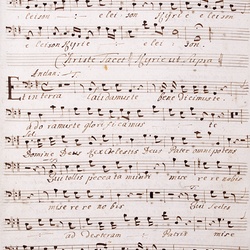 eleison Kyrie eleison
eleison Kyrie eleison.
Christe tacet Kyrie ut supra
Andan:
Et in terra laudamus te benedicimus te
adoramus te glorificamus te
Domine Deus Rex Coelestis Deus Pater omnipotens
Qui tollis peccata mundi misere re nobis
miserere nobis Qui sedes
ad dexteram Patris mise